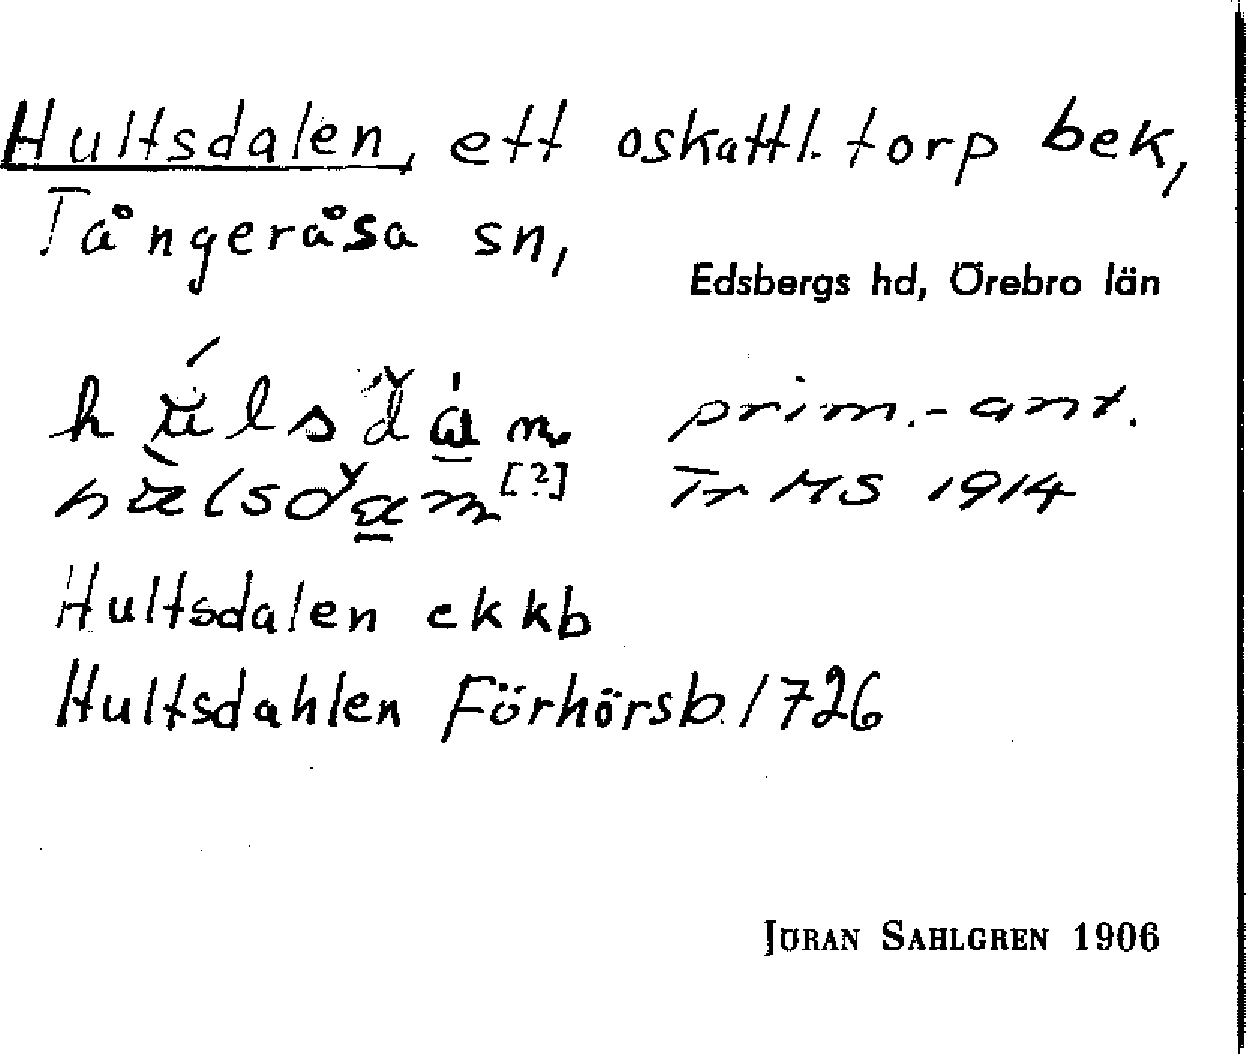 Hultsdalen, ett oskattl. torp bek,
Tångeråsa sn,
Edsbergs hd, Örebro län
prim.-ant.
[?] Tr MS 1914
Hultsdalen ekkb
Hultsdahlen Förhörsb. 1726
JÖRAN SAHLGREN 1906